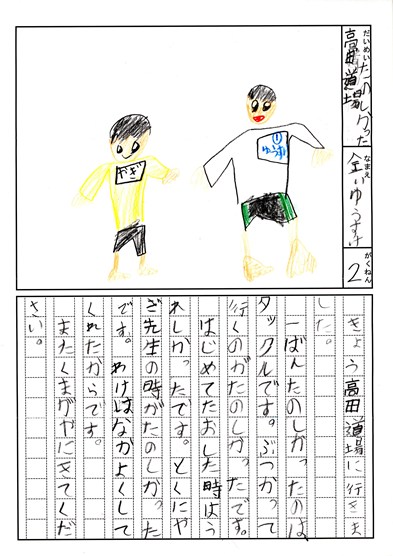 だいめい
たのしかった
高田道場
なまえ
全いゆうすけ
がくねん
2
①
ゆうすけ
やぎ
きょう高田道場に行きま
した。
一ばんたのしかったのは、
タックルです。ぶつかって
行くのがたのしかったです。
はじめてたおした時はう
れしかったです。とくにや
ぎ先生の時がたのしかった
です。わけはなかよくして
くれたからです。
またくまがやにきてくだ
さい。